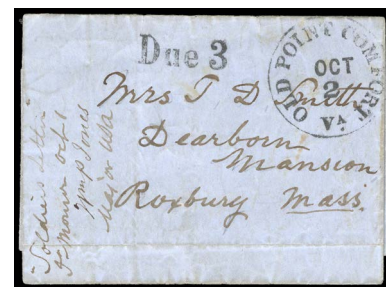 Due 3
OLD POINT COMFORT
OCT
2
VA
Mrs T D Smith
Dearborn
Mansion
Roxbury Mass.
Soldiers letter
Ft Monroe Oct 1
Jones
Major USA